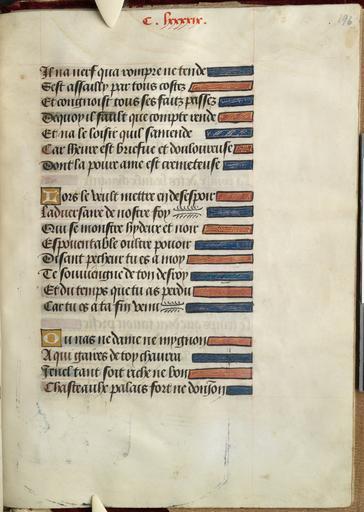 C. lxxxxix.
196
Il na nerf qua rompre ne tende
Sest assailly par tous costez
Et congnoist tous ses faitz passez
Dequoy il fault que compte rende
Et na le loisir quil samende
Car lheure est briefue et douloureuse
Dont la poure ame est cremeteuse
Lors le veult mettre en desespoir
Laduersaire de nostre foy
Qui se monstre hydeux et noir
Espouentable oultre pouoir
Disant pecheur tu es a moy
Te souuiengne de ton desroy
Et du temps que tu as perdu
Car tu es a ta fin venu
Ou nas ne dame ne mygnon
A qui gaires de toy chaura
Jouel tant soit riche ne bon
Chasteau be palais fort ne donJon